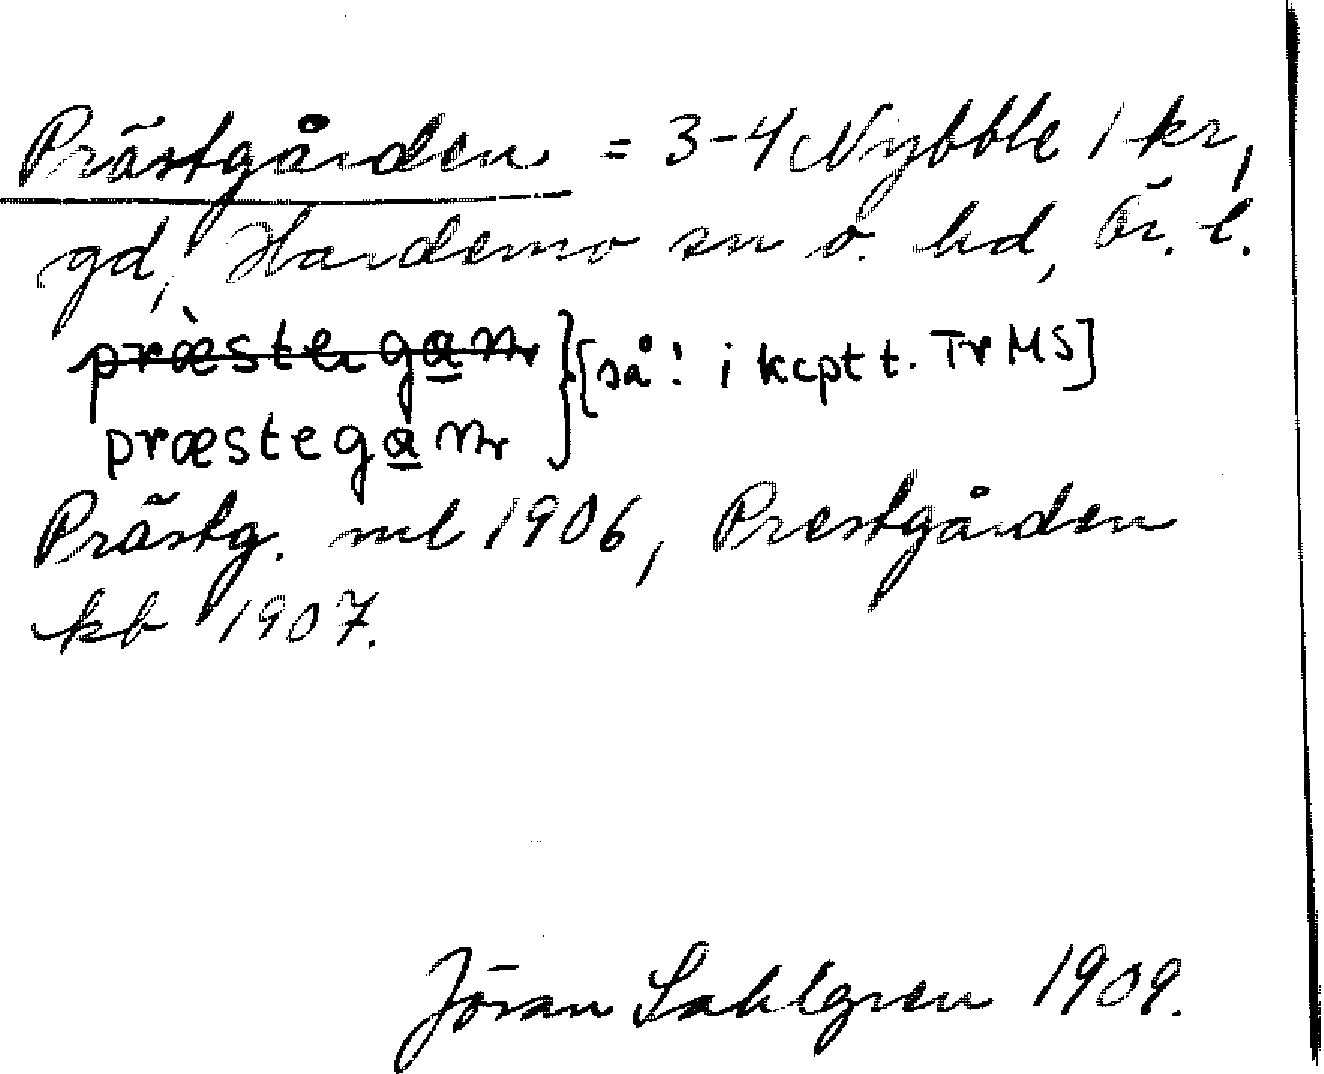 Prästgården = 3-4 Nybble 1 kr,
gd, Hardemo sn o. hd, Ör. l.
præstegaɲr
præstegaɲr } [så! i kcpt t. Tr MS]
Prästg. ml 1906, Prestgården
kb 1907.
Jöran Sahlgren 1909.